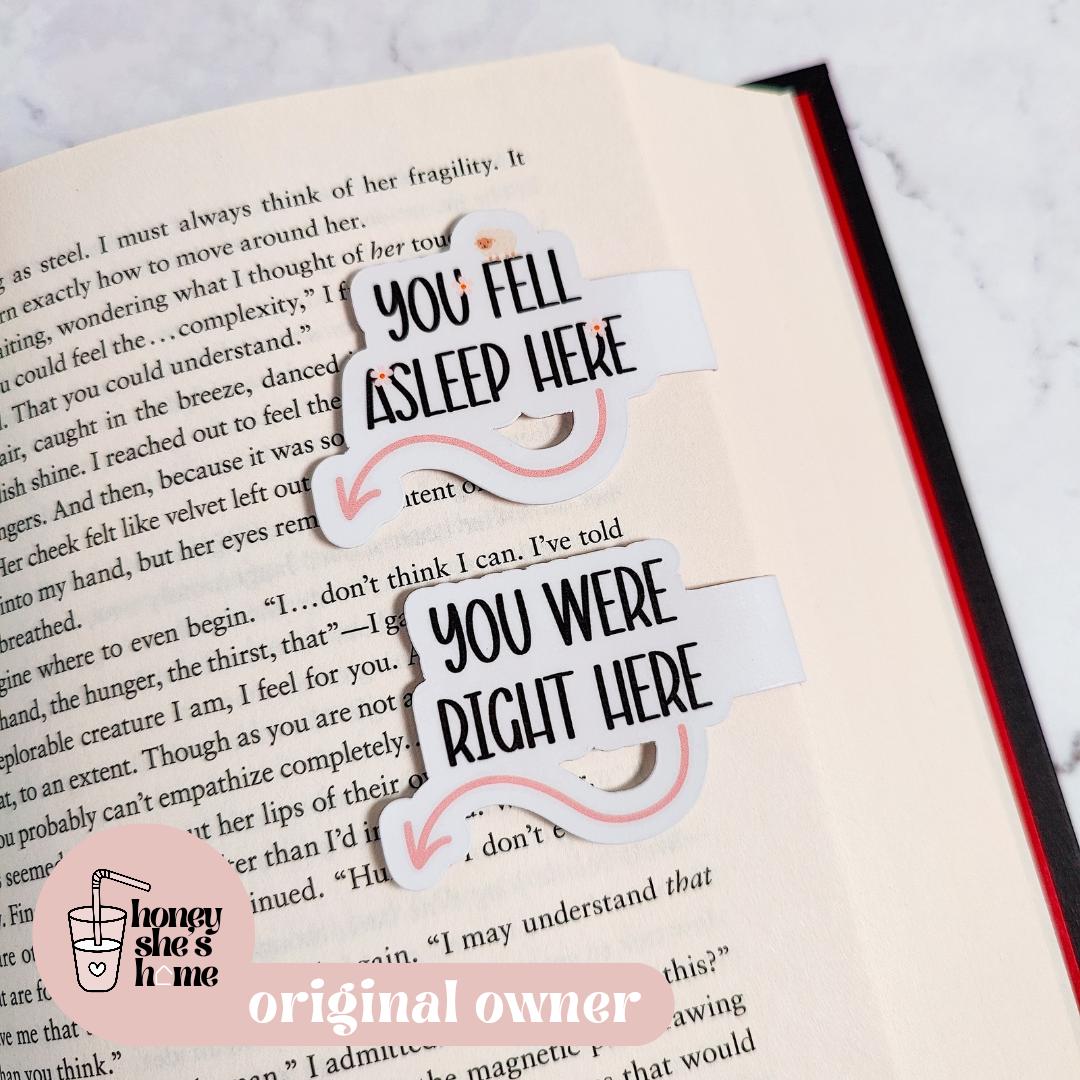 g as steel. I must always think of her fragility. It
rn exactly how to move around her.
aiting, wondering what I thought of her touc
u could feel the…complexity,” I f
l. That you could understand.”
air, caught in the breeze, danced
lish shine. I reached out to feel the
ngers. And then, because it was so
Her cheek felt like velvet left out
into my hand, but her eyes rem ntent o
breathed.
gine where to even begin. “I…don’t think I can. I’ve told
hand, the hunger, the thirst, that”—I ga
eplorable creature I am, I feel for you. A
at, to an extent. Though as you are not a
ou probably can’t empathize completely..
s seeme ut her lips of their ow
y. Fin ter than I’d in
inued. “Hu I don’t e
gain. “I may understand that
this?”
t are fo
ve me that awing
han you think.” man.” I admitte the magnetic p
s that would
YOU FELL
ASLEEP HERE
YOU WERE
RIGHT HERE
honey
she's
home
original owner